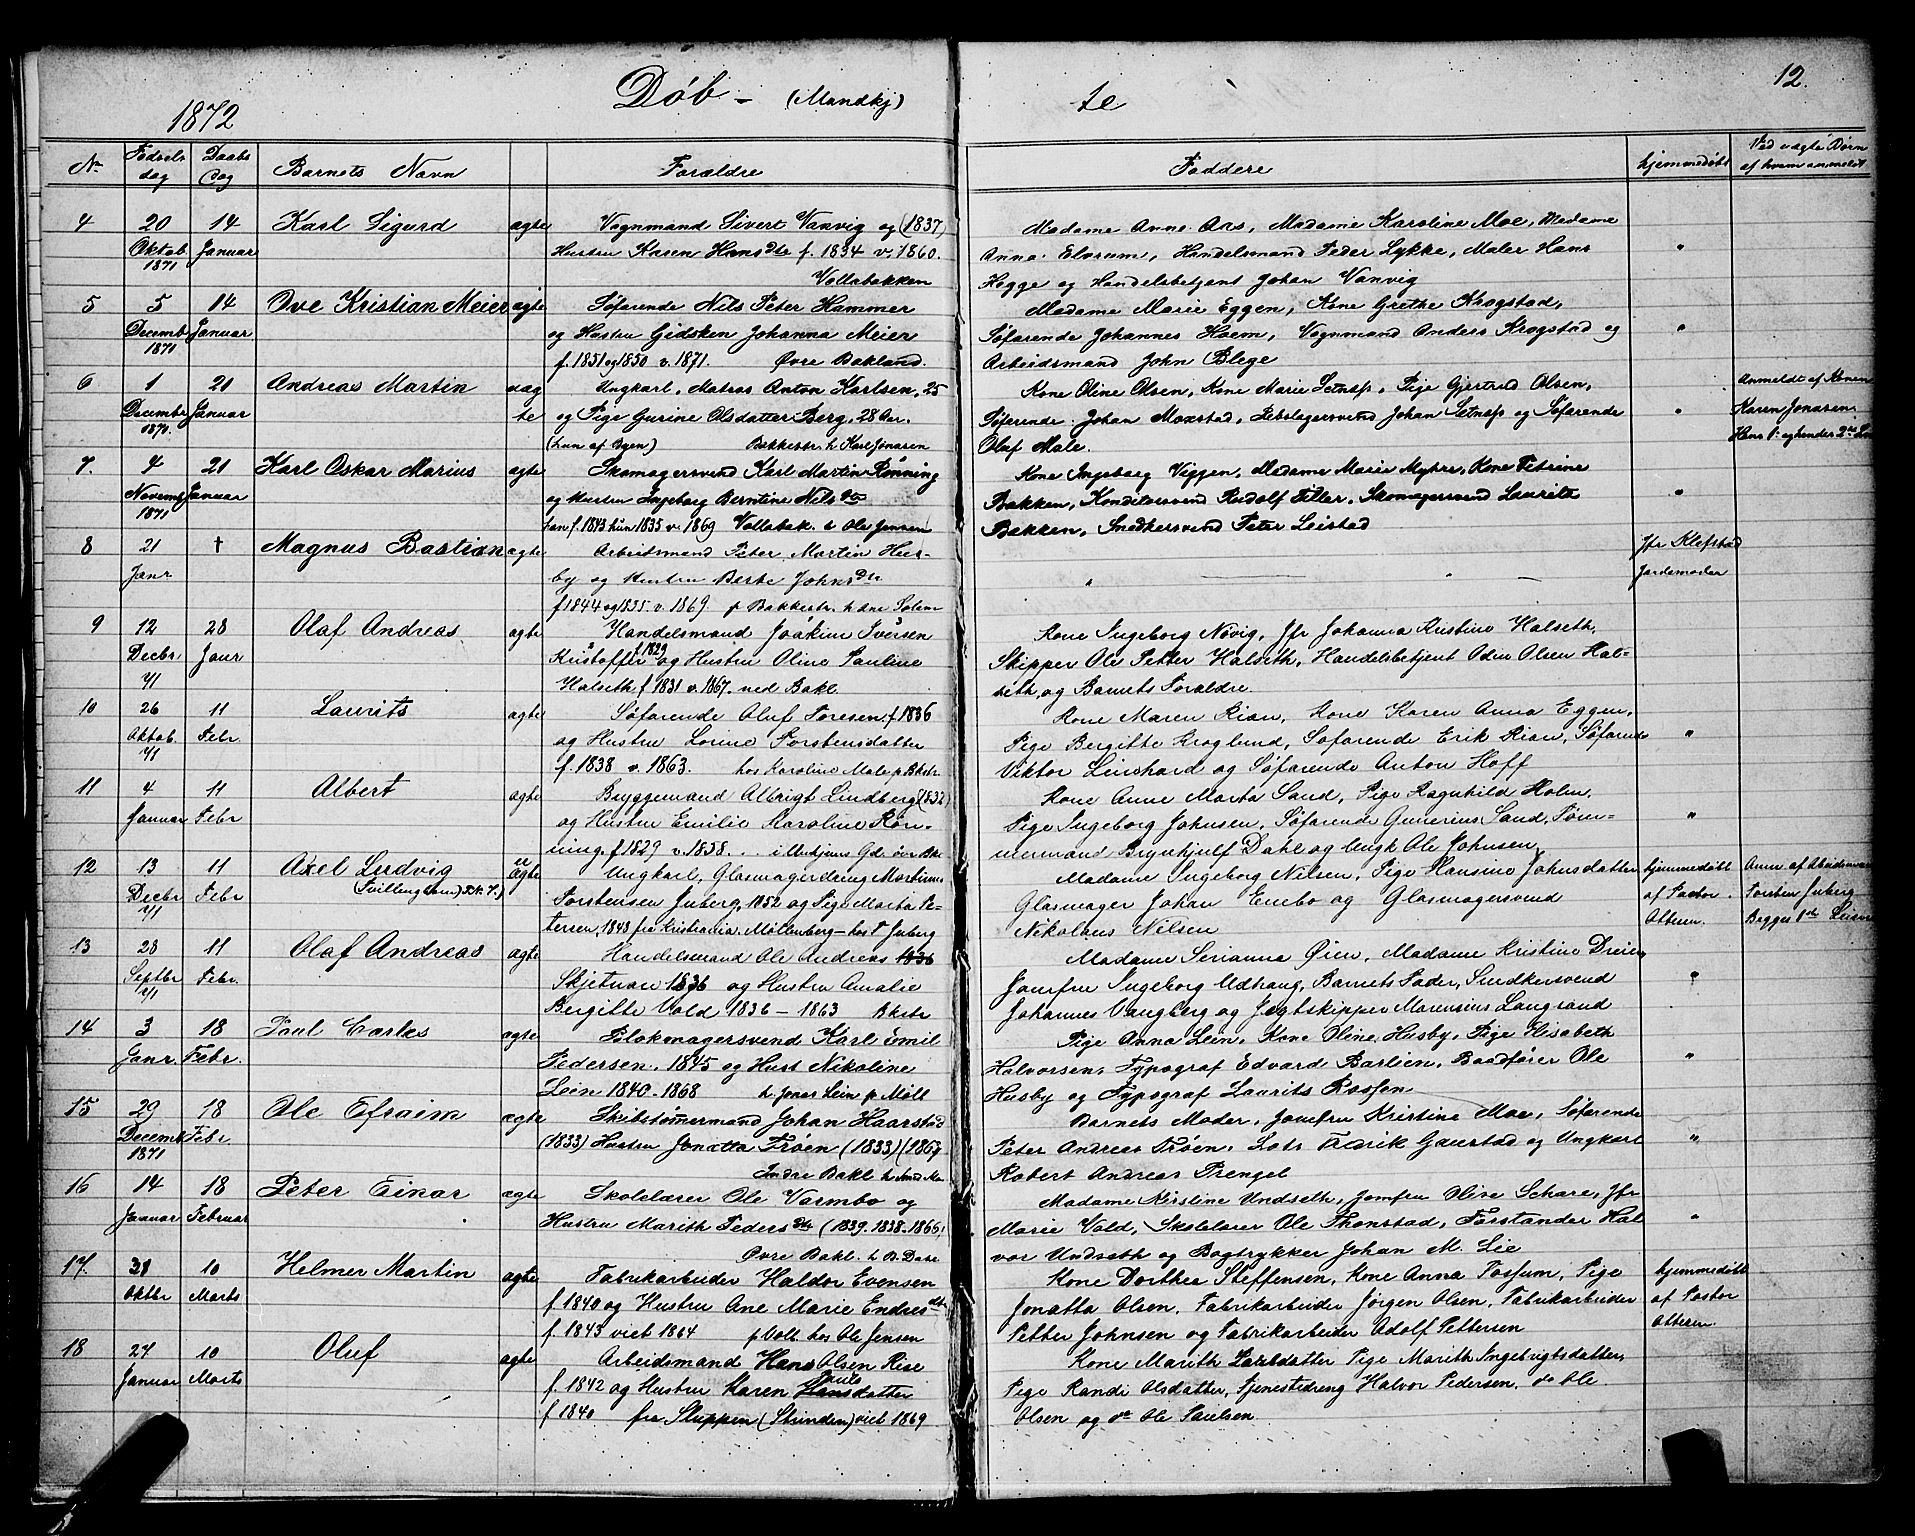 12.
1872 Døb- (Mandkj) te
No Fødsels dag Daabs Dag Barnets Navn Forældre Faddere hjemmedøbt Ved uægte Børn af hvem anmeldt
4 20 14 Karl Sigurd ægte Vognmand Sivert Vanvig og (1837
Oktob. Januar Hustru Karen Hansdtr f. 1834 v. 1860.
1871 Vollabakken
Madame Anne Aas, Madame Karoline Moe, Madame
Anna Elvrum, Handelsmand Peder Lykke, Maler Hans
Hegge og Handelsbetjent Johan Vanvig
5 5 14 Ove Kristian Meier ægte Søfarende Nils Peter Hammer
Decemb Januar og Hustru Gidsken Johanna Meier
1871 f. 1851 og 1850 v. 1871. Øvre Bakland.
Madame Marie Eggen, Kone Grethe Krogstad,
Søfarende Johannes Hoem, Vognmand Anders Krogstad og
Arbeidsmand John Blege
6 1 21 Andreas Martin uæg Ungkarl, Matros Anton Karlsen, 25
Decembr Januar te og Pige Gurine Olsdatter Berg, 28 Aar.
1871. (hun af Byen) Bakkestr. h Karl Jonasen
Kone Oline Olsen, Kone Marie Setnæss, Pige Gjertrud Olsen, Anmeldt af Konen
Søfarende Johan Moxstad, Rebslagersvend Johan Setnæss og Søfarende Karen Jonasen
Oluf Male. Hans 1. og hendes 2de
7. 4 21 Karl Oskar Marius ægte Skomagersvend Karl Martin Rønning
Novemb Januar og Hustru Ingeborg Berntine Nilsdtr
1871 han f. 1843 hun 1835 v. 1869 Vollabak. h Ole Jensen
Kone Ingeborg Viggen, Madame Marie Myhre, Kone Petrine
Bakken, Konditorsvend Rudolf Tiller, Skomagersvend Laurits
Bakken, Snedkersvend Peter Leistad
8 21 † Magnus Bastian ægte Arbeidsmand Peter Martin Hus-
Janr by og Hustru Berte Johnsdtr
f 1844 og 1835. v. 1869. p Bakkestr. h
Jfr Klefstad
Jordemoder
9 12 28 Olaf Andreas ægte Handelsmand Joakim Iversen
Decbr Janr Kristoffer f. 1829 og Hustru Oline Pauline
71 Halseth f 1831 v. 1867. ned Bakl.
Kone Ingeborg Nøvig, Jfr Johanna Kristine Halseth,
Skipper Ole Petter Halseth, Handelsbetjent Odin Olsen Hal-
seth, og Barnets Forældre.
10 26 11 Laurits ægte Søfarende Oluf Toresen. f 1836
Oktob. Febr. og Hustru Lorine Torstensdatter
71 f. 1838 v. 1863. hos Karoline Male p Bkstr.
Kone Maren Rian, Kone Karen Anna Eggen,
Pige Bergitte Kroglund, Søfarende Erik Rian, Søfarende
Viktor Linhard og Søfarende Anton Hoff
11 4 11 Albert ægte Bryggemand Albrigt Lindberg (1832)
Januar Febr og Hustru Emilie Karoline Røn-
ning. f 1829 v. 1858.
Kone Anne Marta Sand, Pige Ragnhild Holm,
Pige Ingeborg Johnsen, Søfarende Gunerius Sand, Tøm-
mermand Brynhjulf Dahl og Ungk Ole Johnsen
12 13 11 Axel Ludvig u ægte Ungkarl, Glasmagerdreng Martinus
Decbr Febr (Tvillingbarn) Torstensen Juberg, 1852 og Pige Marta Pe-
71 tersen, 1848 fra Kristiania. Møllenberg - hos T Juberg
Madame Ingeborg Nilsen, Pige Hansine Johnsdatter hjemmedøbt Anm af Arbeidsmand
Glasmager Johan Enebo og Glasmagersvend af Pastor Torsten Juberg
Nikolaus Nilsen Begges 1ste
13 28 11 Olaf Andreas ægte Handelsmand Ole Andreas 1836
Septbr Febr. Skjetnan 1836 og Hustru Amalie
71 Bergitte Vold 1836 - 1863 Bkstr
Madame Serianna Øien, Madame Kristine Dreier,
Jomfru Ingeborg Udhaug, Barnets Fader, Snedkersvend
Johannes Vangberg og Jægtskipper Marensius Langrand
14 3 18 Paul Carles ægte Blokmagersvend Karl Emil
Janr. Febr. Pedersen. 1845 og Hust Nikoline
Lein 1840. 1868 h. Jonas Lein p Møll
Pige Anna Lein, Kone Oline Husby, Pige Elisabeth
Halvorsen, Typograf Edvard Barlien, Baadfører Ole
Husby og Typograf Laurits Rossen
15 29 18 Ole Efraim ægte Skibstømermand Johan Haarstad
Decemb Febr (1833) Hustru Jonetta Trøen (1833) (1867
1871 Indre Bakl
Barnets Moder, Jomfru Kristine Moe, Søfarende
Peter Andreas Trøen, Lots Fredrik Gaustad og Ungkarl
Robert Andreas Prengel
16 14 18 Peter Einar ægte Skolelærer Ole Varmbo og
Januar Februar Hustru Marith Pedersdtr (1839. 1838. 1866)
Øvre Bakl. h B. Dase
Madame Kirstine Undseth, Jomfru Oline Schare, Jfr
Marie Vold, Skolelærer Ole Thonstad, Forstander Hal
vor Undseth og Bogtrykker Johan M. Lie
17. 31 10 Helmer Martin ægte Fabrikarbeider Haldor Evensen
Oktbr Marts f. 1840 og Hustru Ane Marie Endresdtr
f. 1843 viet 1864 p Voll hos Ole Jensen
Kone Dorthea Steffensen, Kone Anna Fossum, Pige hjemmedøbt
Jonetta Olsen, Fabrikarbeider Jørgen Olsen, Fabrikarbeider af Pastor
Petter Johnsen og Fabrikarbeider Adolf Pettersen
18 27 10 Oluf ægte Arbeidsmand Hans Olsen Rise
Januar Marts f. 1842 og Hustru Karen Larsdatter
f 1840 fra Sluppen (Strinden) viet 1869
Kone Marith Larsdatter Pige Marith Ingebrigtsdatter,
Pige Randi Olsdatter, Tjenestedreng Halvor Pedersen, do Ole
Olsen og do Ole Paulsen